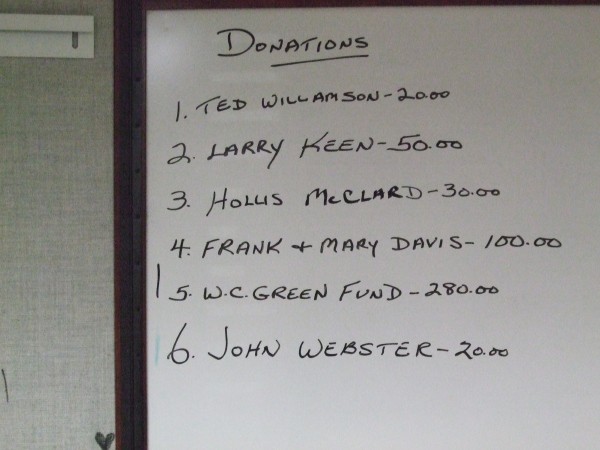 DONATIONS
1. TED WILLAMSON - 20.00
2. LARRY KEEN - 50.00
3. HOLLIS MCCLARD - 30.00
4. FRANK + MARY DAVIS - 100.00
5. W.C. GREEN FUND - 280.00
6. JOHN WEBSTER - 20.00